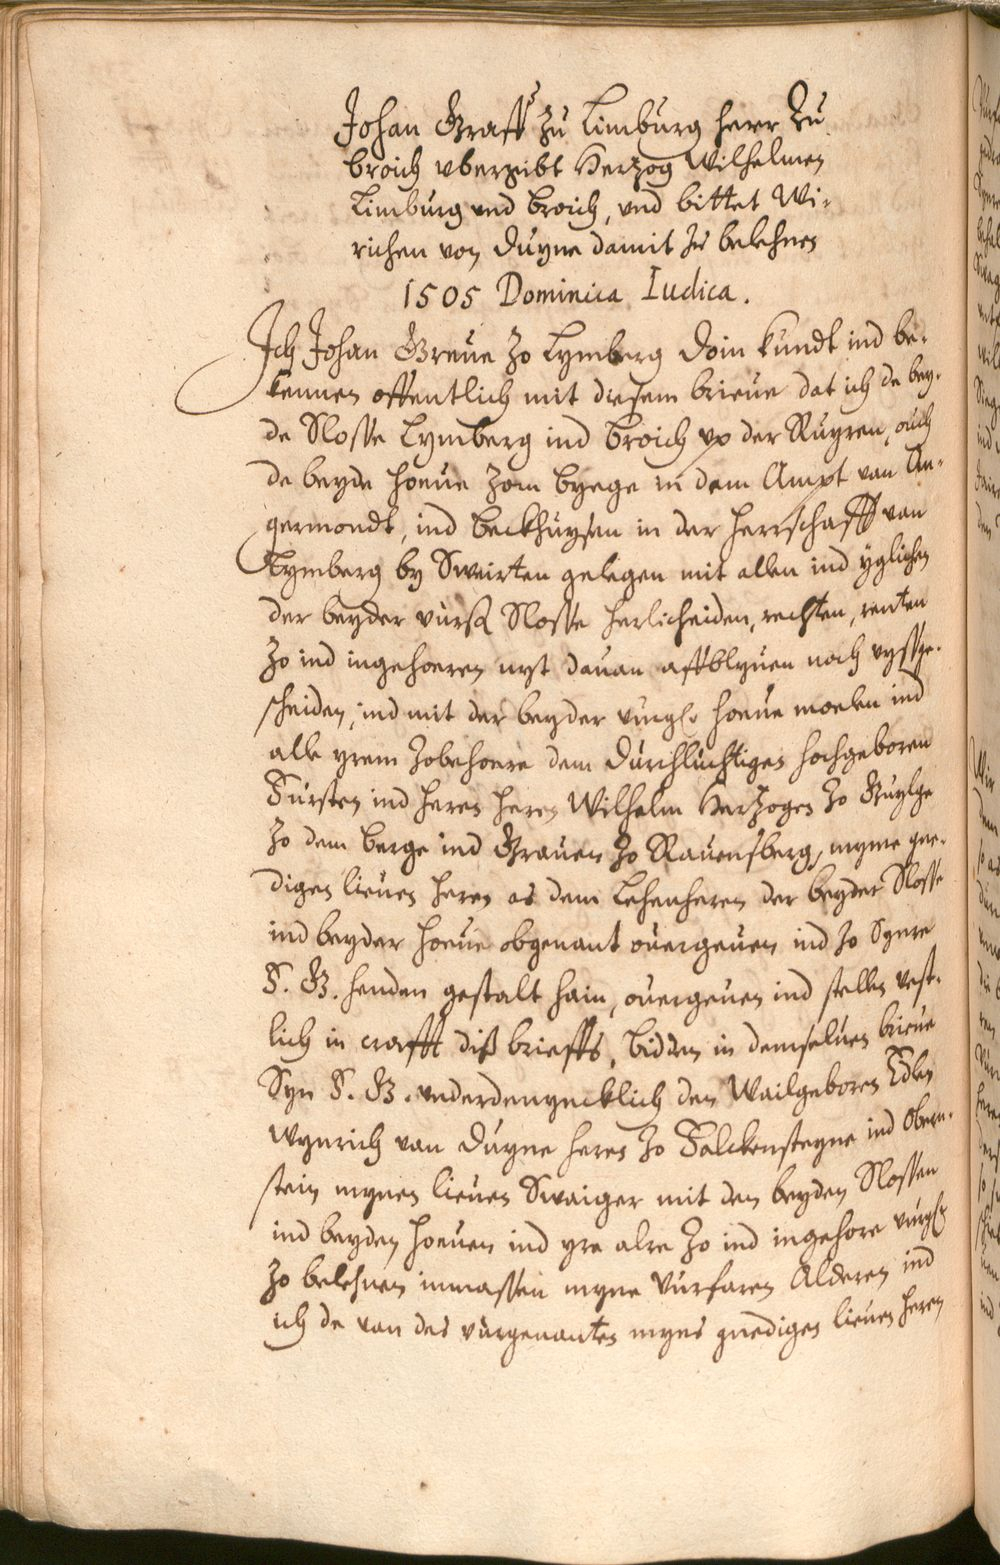 Johan Graff zu Limburg herr zu
broich vbergibt Hertzog Wilhelmen
Limburg vnd broich, vnd bittet Wi-
richen von Duyne damit zu belehnen
1505 Dominica Iudica.
Ich Johan Greue zo Lymberg doin kundt ind be-
kennen offentlich mit diesem brieue dat ich de bey-
de Slosse Lymberg ind broich vp der Ruyren, ouch
de beyde hoeue zom byege in dem Ampt van An-
germondt, ind beckhuysen in der herrschafft van
Lymberg by Sweirten gelegen mit allen ind yglichen
der beyder vurss Slosse herlicheiden, rechten, renten
zo ind ingehoeren nyt dauan affblyuen noch vyssge-
scheiden, ind mit der beyder vurgss hoeue moelen ind
alle yrem zobehoere dem durchluchtigen hochgeboren
Fursten ind heren heren Wilhelm Hertzogen zo Guylge
zo dem berge ind Grauen zo Rauensberg, myme gne-
digen lieuen heren as dem Lehenheren der beyder Slosse
ind beyder hoeue obgenant ouergeuen ind zo Synre
F. G. henden gestalt hain, ouergeuen ind stellen vest-
lich in crafft diß brieffs, bidden in demseluen brieue
Syn F. G. vnderdenyncklich den Wailgeboren Edlen
Wynrich van Duyne heren zo Falckensteyne ind Obern-
stein mynen lieuen Swaiger mit den beyden Slossen
ind beyden hoeuen ind yre alre zo ind ingehore vurgss
zo belehnen inmassen myne Vurfaren Alderen ind
ich de van des vurgenanten myns gnedigen lieuen heren